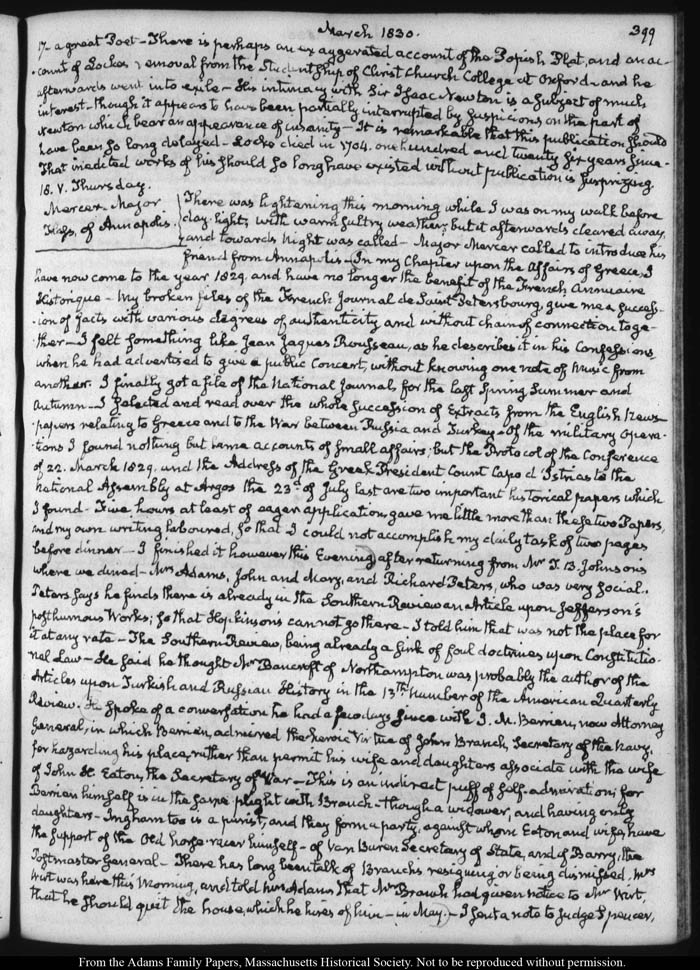 March 1830.
399
17. a great Poet – There is perhaps an exaggerated account of the Popish Plot, and an ac-
count of Locke's removal from the Studentship of Christ Church College at Oxford – and he
afterwards went into exile – His intimacy with Sir Isaac Newton is a subject of much
interest – though it appears to have been partially interrupted by suspicions on the part of
Newton which bear an appearance of insanity – It is remarkable that this publication should
have been so long delayed – Locke died in 1704. one hundred and twenty six years since –
That inedited works of his should so long have existed without publication is surprizing.
18. V. Thursday.
Mercer. Major
of Annapolis.
There was lightening this morning while I was on my walk before
day-light, with warm sultry weather; but it afterwards cleared away,
and towards Night was called – Major Mercer called to introduce his
friend from Annapolis – In my Chapter upon the Affairs of Greece, I
have now come to the year 1829. and have no longer the benefit of the French Annuaire
Historique – My broken files of the French Journal de Saint Petersbourg, give me a success-
ion of facts with various degrees of authenticity and without chain of connection toge-
ther – I felt something like Jean Jaques Rousseau, as he describes it in his Confessions,
when he had advertised to give a public Concert, without knowing one note of Music from
another. I finally got a file of the National Journals for the last Spring Summer and
Autumn – I selected and read over the whole succession of Extracts from the English News-
papers relating to Greece and to the War between Russia and Turkey – Of the military opera-
tions I found nothing but lame accounts of small affairs; but the Protocol of the Conference
of 22. March 1829. and the Address of the Greek President Count Capo d'Istrias to the
National Assembly at Argos the 23d. of July last are two important historical papers which
I found – Five hours at least of eager application, gave me little more than these two Papers,
and my own writing laboured, so that I could not accomplish my daily task of two pages
before dinner – I finished it however this Evening after returning from Mr T. B. Johnson's
where we dined – Mrs Adams, John and Mary, and Richard Peters, who was very social.
Peters says he finds there is already in the Southern Review an Article upon Jefferson's
posthumous Works; so that Hopkinson's cannot go there – I told him that was not the place for
it at any rate – The Southern Review, being already a sink of foul doctrines upon Constitutio-
nal Law – He said he thought Mr Bancroft of Northampton was probably the author of the
Articles upon Turkish and Russian History in the 13th. number of the American Quarterly
Review. He spoke of a conversation he had a few days since with J. M. Berrien, now Attorney
General, in which Berrien admired the heroic virtue of John Branch, Secretary of the Navy,
for hazarding his place, rather than permit his wife and daughters associate with the wife
of John H. Eaton, the Secretary of War – This is an indirect puff of self-admiration; for
Berrien himself is in the same plight with Branch – though a widower, and having only
daughters – Ingham too is a purist, and they form a party, against whom Eaton and wife, have
the support of the Old horse-racer himself – of Van Buren Secretary of State, and of Barry, the
Postmaster General – There has long been talk of Branch's resigning or being dismissed. Mrs
Wirt was here this Morning, and told Mrs Adams that Mr Branch had given notice to Mr Wirt,
that he should quit the house, which he hires of him – in May. – I sent a note to Judge Spencer,
From the Adams Family Papers, Massachusetts Historical Society. Not to be reproduced without permission.